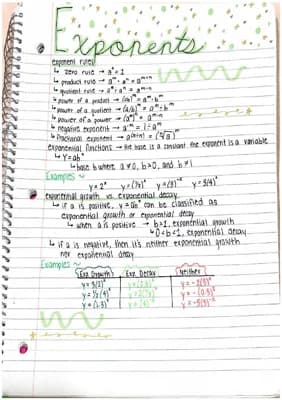 Exponents
exponent rules
↳ zero rule → a⁰ = 1
↳ product rule → aᵐ · aⁿ = aᵐ⁺ⁿ
↳ quotient rule → aᵐ ÷ aⁿ = aᵐ⁻ⁿ
↳ power of a product → (ab)ᵐ = aᵐ · bᵐ
↳ power of a quotient → (a/b)ᵐ = aᵐ ÷ bᵐ
↳ power of a power →
↳ negative exponent → a⁻ᵐ = 1 ÷ aᵐ
↳ fractional exponent →
exponential functions → the base is a constant the exponent is a variable
↳ y = abˣ
↳ base b where a ≠ 0, b > 0, and b ≠ 1
Examples ~
y = 2ˣ
exponential growth vs. exponential decay
↳ if a is positive, y = abˣ can be classified as
exponential growth or exponential decay
↳ when a is positive → b > 1, exponential growth
↳ 0 < b < 1, exponential decay
↳ if a is negative, then it's neither exponential growth
nor exponential decay
Examples ~
Exp. Growth Exp. Decay Neither